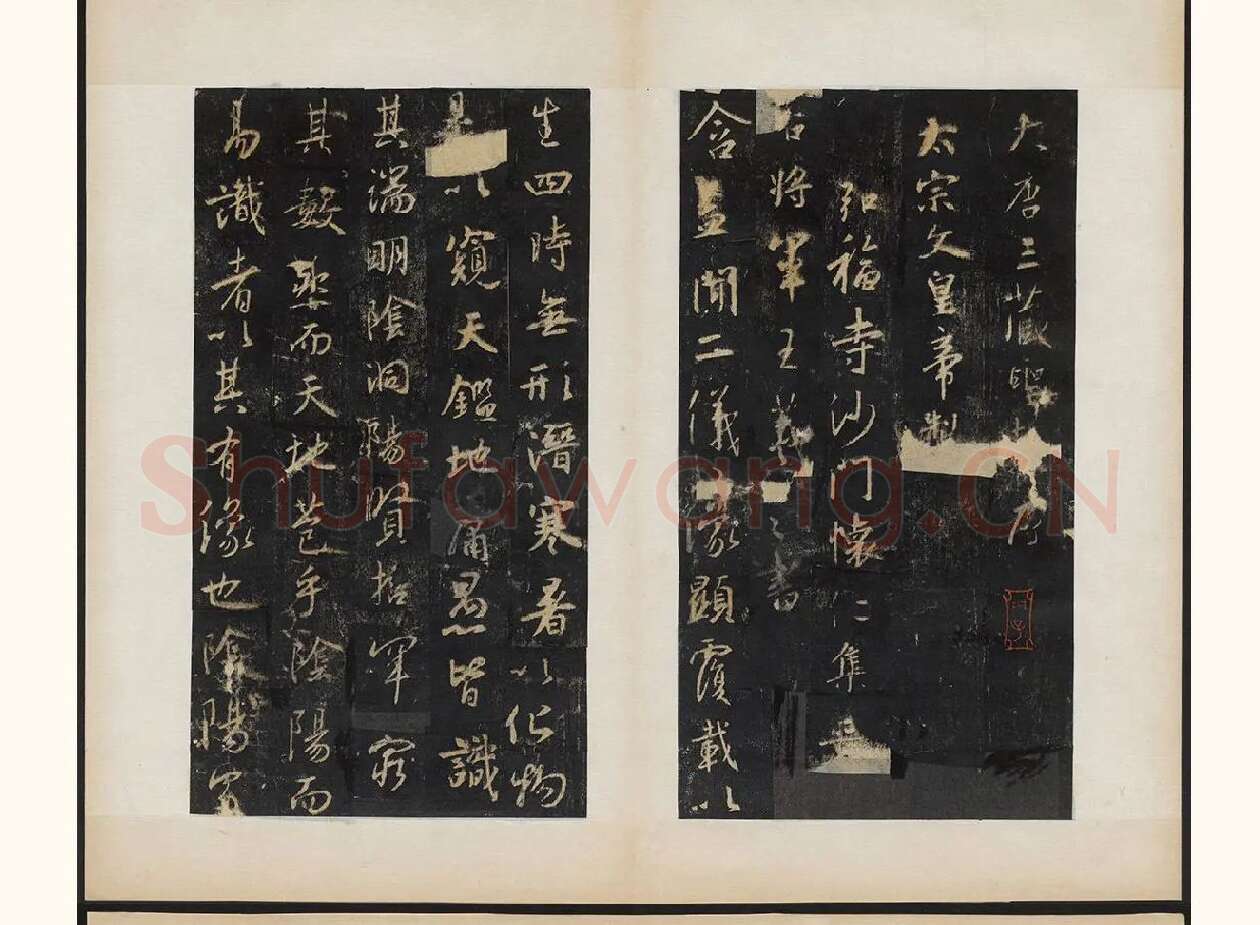 大唐三藏聖序
太宗文皇帝製
弘福寺沙門懷仁集晉
右將軍王羲之書
含蓋聞二儀像顯覆載以
生四時無形潛寒暑以化物
是以窺天鑑地庸愚皆識
其端明陰洞陽賢哲罕窮
其數然而天地苞乎陰陽而
易識者以其有像也陰陽處
Shufawang.CN